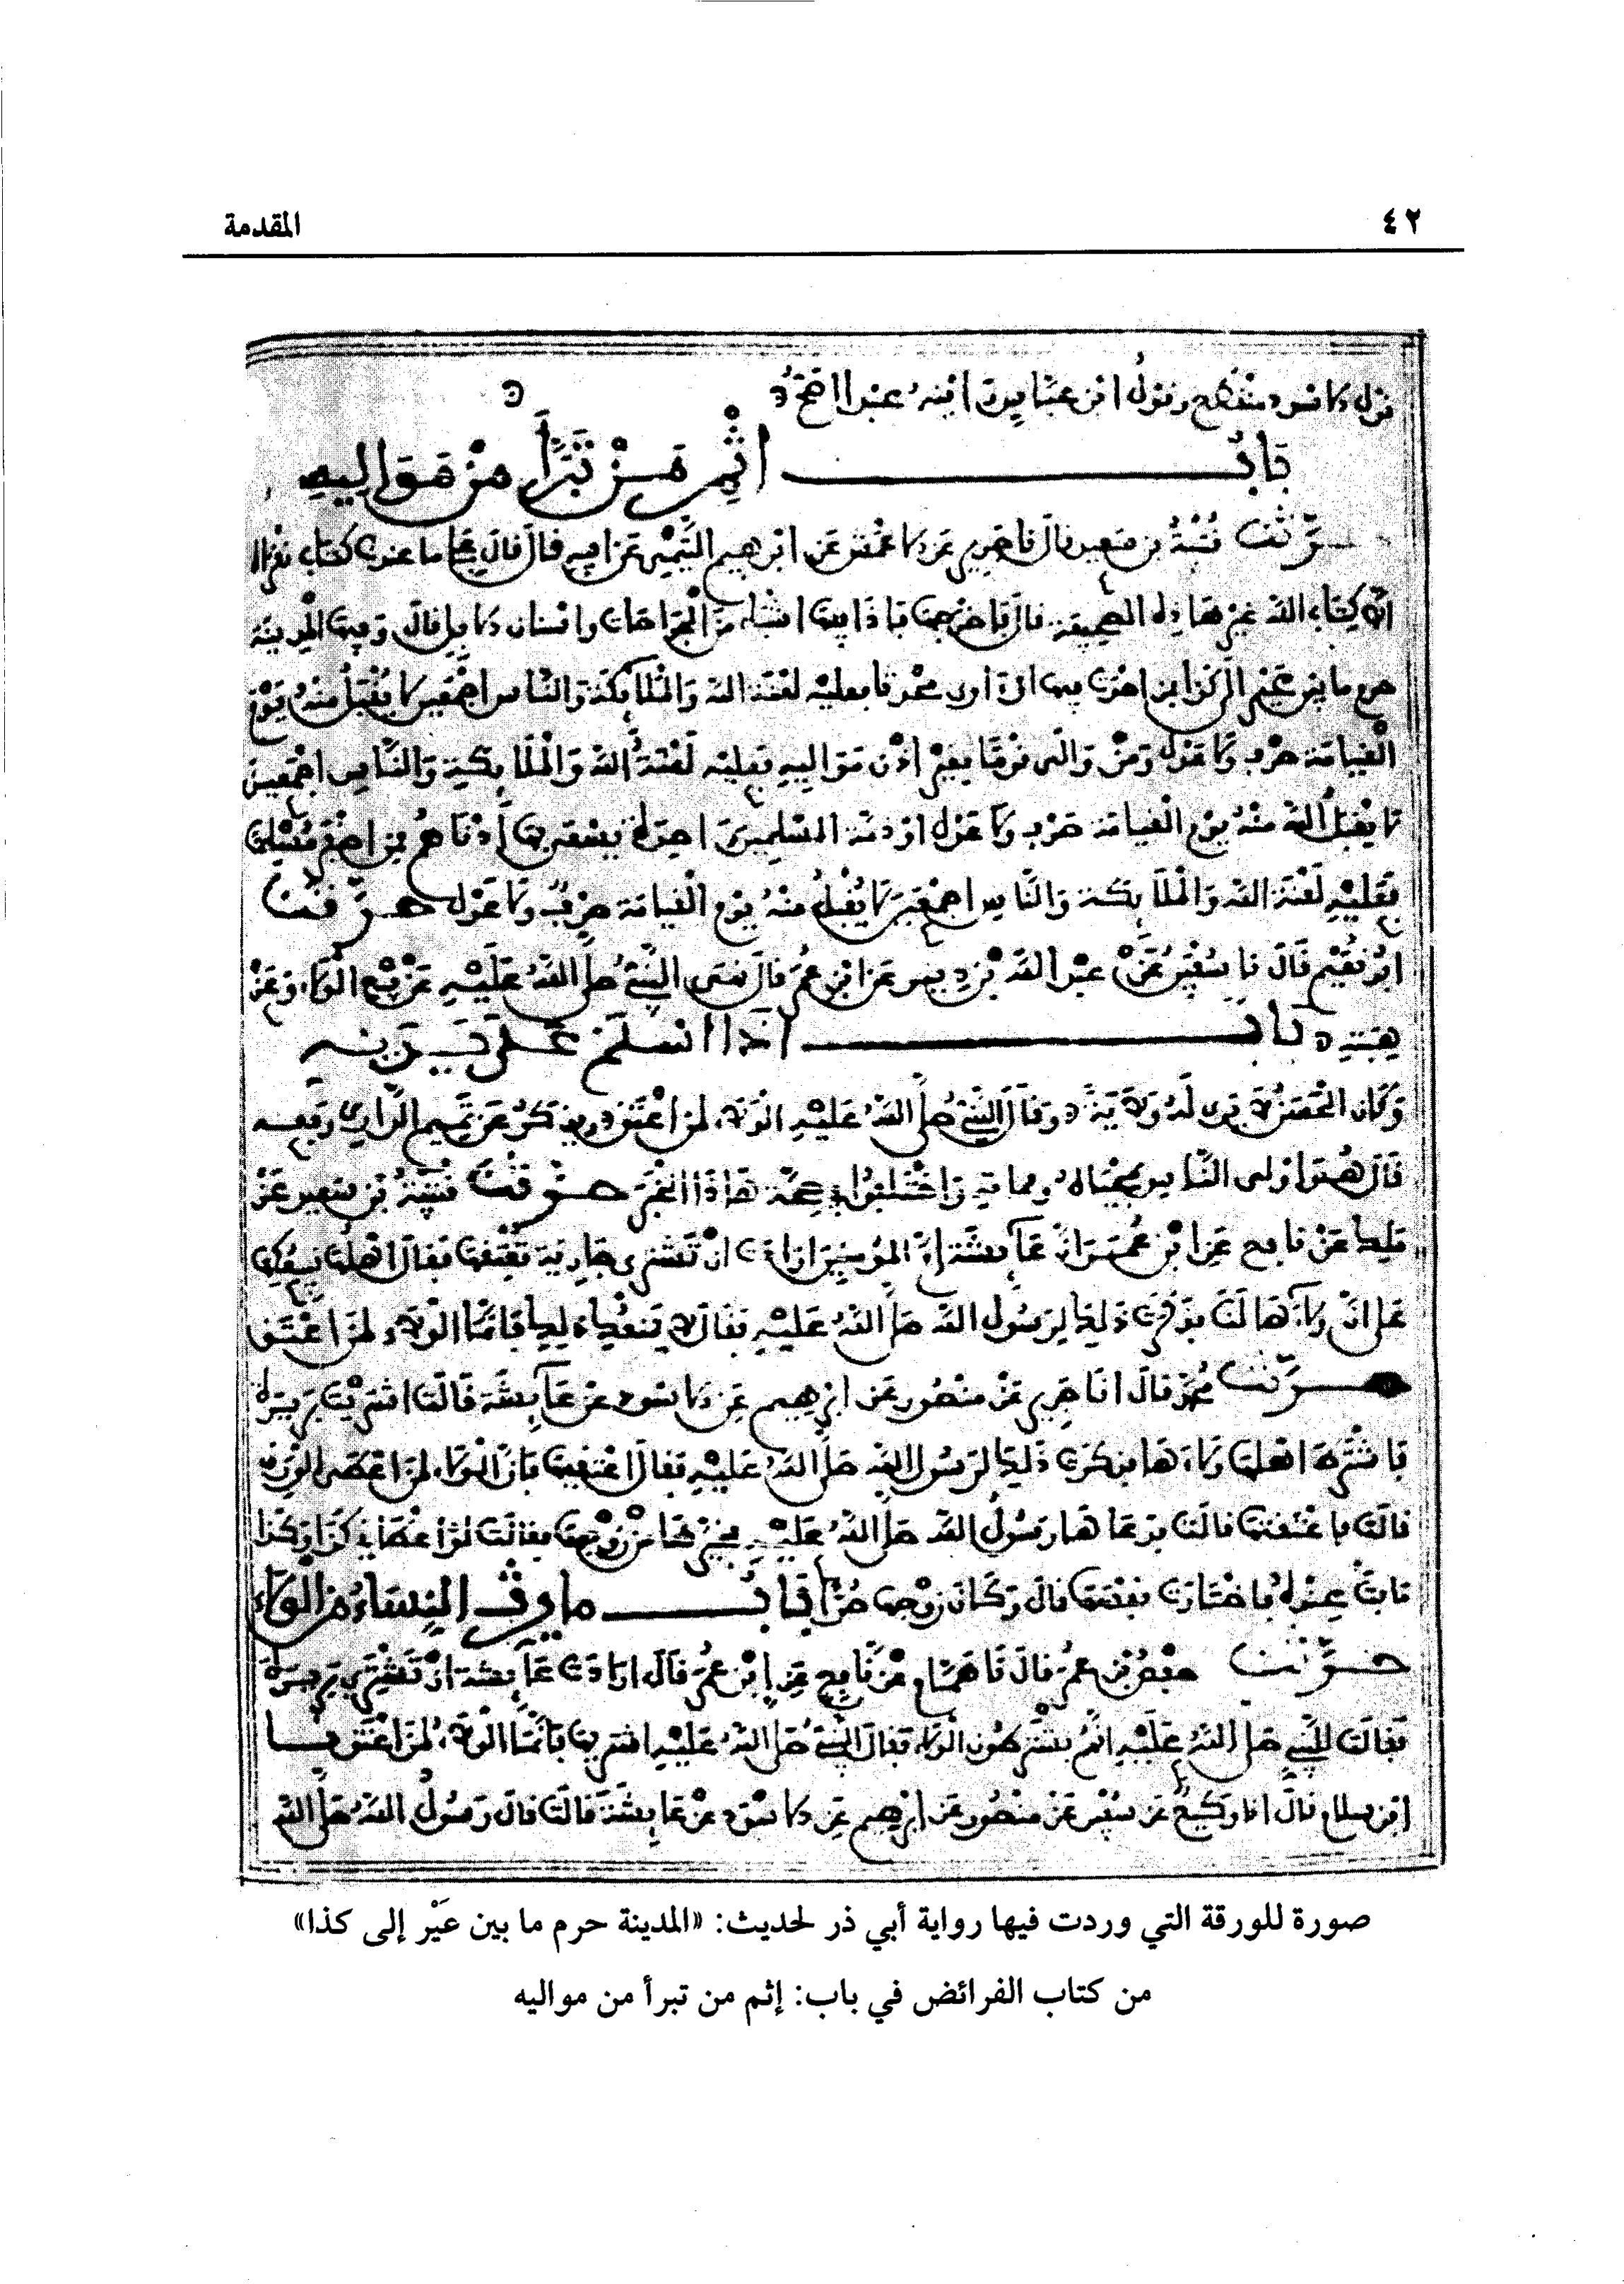 ٤٢
المقدمة
قول الاسود منقطع وقول ابن عباس رايته عبدا اصح
باب اثم من تبرأ من مواليه
حدثنا قتيبة بن سعيد قال نا جرير عن الاعمش عن ابرهيم التيمي عن ابيه قال قال علي ما عندنا كتاب نقرأه
الا كتاب الله غير هاذه الصحيفة قال فاخرجها فاذا فيها اشياء من الجراحات واسنان الابل قال وفيها المدينة
حرم ما بين عير الى كذا من احدث فيها او اوى محدثا فعليه لعنة الله والملائكة والناس اجمعين لا يقبل منه يوم
القيامة صرف ولا عدل ومن والى قوما بغير اذن مواليه فعليه لعنة الله والملائكة والناس اجمعين
لا يقبل الله منه يوم القيامة صرف ولا عدل وذمة المسلمين واحدة يسعى بها ادناهم فمن اخفر مسلما
فعليه لعنة الله والملائكة والناس اجمعين لا يقبل منه يوم القيامة صرف ولا عدل حدثنا
ابو نعيم قال نا سفين عن عبد الله بن دينر عن ابن عمر قال نهى النبي صلى الله عليه عن بيع الولاء وعن
هبته باب اذا اسلم على يديه
وكان الحسن لا يرى له ولاية وقال النبي صلى الله عليه الولاء لمن اعتق ويذكر عن تميم الداري رفعه
قال هو اولى الناس بمحياه ومماته واختلفوا في صحة هاذا الخبر حدثنا قتيبة بن سعيد عن
ملك عن نافع عن ابن عمر ان عائشة ام المؤمنين ارادت ان تشتري جارية تعتقها فقال اهلها نبيعكها
على ان ولاءها لنا فذكرت ذلك لرسول الله صلى الله عليه فقال لا يمنعك ذلك فانما الولاء لمن اعتق
حدثنا محمد قال انا جرير عن منصور عن ابرهيم عن الاسود عن عائشة قالت اشتريت بريرة
فاشترط اهلها ولاءها فذكرت ذلك لرسول الله صلى الله عليه فقال اعتقيها فان الولاء لمن اعطى الورق
قالت فاعتقتها قالت فدعاها رسول الله صلى الله عليه فخيرها من زوجها فقالت لو اعطاني كذا وكذا
ما بت عنده فاختارت نفسها قال وكان زوجها حرا باب ما يرث النساء من الولاء
حدثنا حفص بن عمر قال نا همام عن نافع عن ابن عمر قال ارادت عائشة ان تشتري بريرة
فقالت للنبي صلى الله عليه انهم يشترطون الولاء فقال النبي صلى الله عليه اشتريها فانما الولاء لمن اعتق نا
ابن سلام قال انا وكيع عن سفين عن منصور عن ابرهيم عن الاسود عن عائشة قالت قال رسول الله صلى الله
صورة للورقة التي وردت فيها رواية أبي ذر لحديث: «المدينة حرم ما بين عَيْر إلى كذا»
من كتاب الفرائض في باب: إثم من تبرأ من مواليه